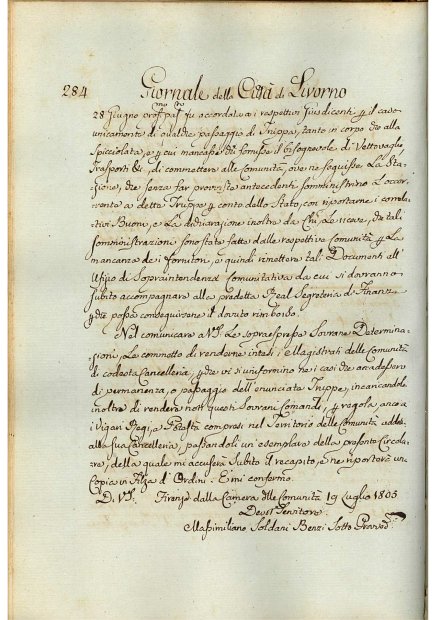 284 Giornale della Città di Livorno
28 Giugno pros. pas. fu accordata a i respettivi Giusdicenti p il caso
unicamente di qualche passaggio di Truppa, tanto in corpo che alla
Spicciolata, e p cui mancasse chi fornisse il bisognevole di Vettovaglie
Trasporti &c, di commettere alle Comunità, ove ne seguisse La Sta=
=zione, che senza far provviste antecedenti somministrino L'occor=
=rente a dette Truppe p conto dello Stato, con riportarne i correla=
=tivi Buoni, e La dichiarazione inoltre da Chi, che tali
somministrazioni sono state fatte dalle respettive Comunità p La
mancanza de i Fornitori, e quindi rimettere tali Documenti all'
Ufizio di Sopraintendenza Comunitativa da cui si dovranno
subito accompagnare alla predetta Real Segreteria di Finanze
p che possa conseguirsene il dovuto rimborso.
Nel comunicare a VS. Le sopraespresse Sovrane Determina=
=zioni, Le commetto di renderne intesi i Magistrati delle Comunità
di codesta Cancelleria, p che vi si uniformino ne i casi che accadessero
di permanenza, o passaggio dell'enunciate Truppe, incaricandola
inoltre di rendere noti questi Sovrani Comandi, p regola, anco a
i Vicari Regi, e Potestà compresi nel Territorio delle Comunità addette
alla sua Cancelleria, passandoli un esemplare della presente Circola=
=re, della quale mi accuserà subito il recapito, e ne riporterà una
Copia in Filza d'Ordini. E mi confermo.
Di VS. Firenze dalla Camera delle Comunità 19 Luglio 1805
Devot Servitore
Massimiliano Soldani Benzi Sotto Provved.